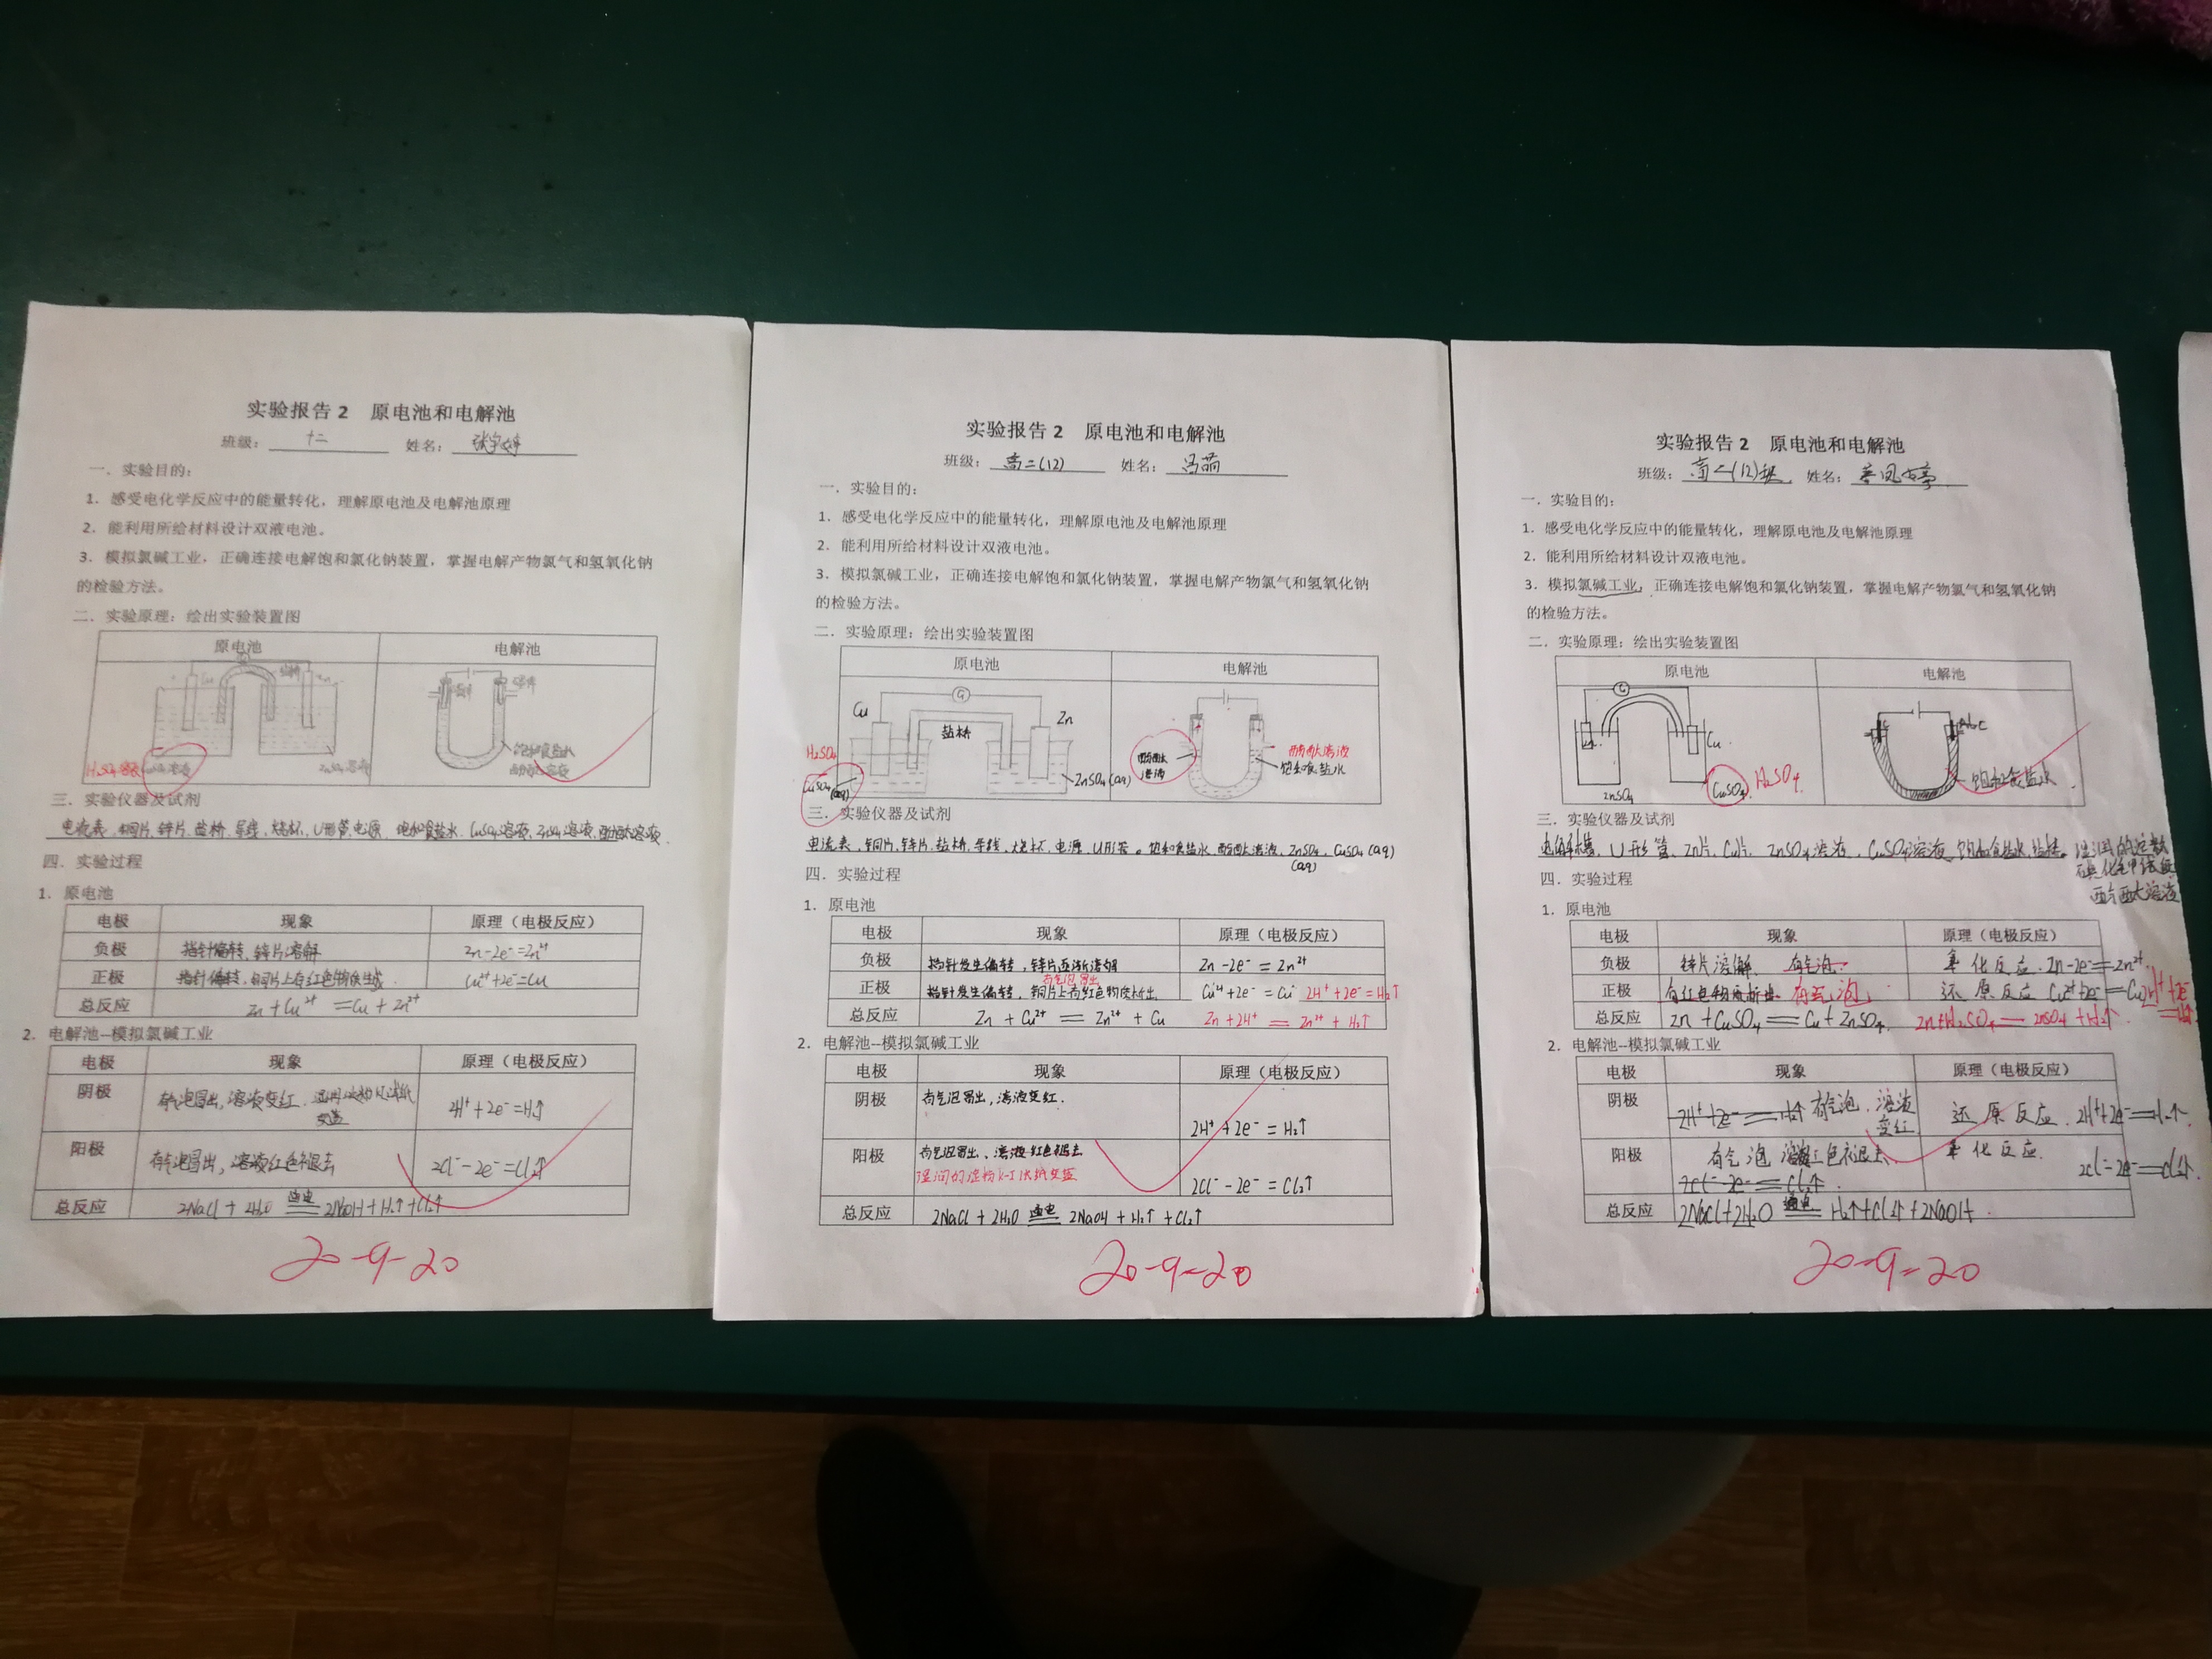 实验报告 2 原电池和电解池
班级: 十二 姓名: 张宇婷
一. 实验目的:
1. 感受电化学反应中的能量转化，理解原电池及电解池原理
2. 能利用所给材料设计双液电池。
3. 模拟氯碱工业，正确连接电解饱和氯化钠装置，掌握电解产物氯气和氢氧化钠
的检验方法。
二. 实验原理: 绘出实验装置图
原电池 电解池
Cu 盐桥 Zn
饱和食盐水
酚酞溶液
H₂SO₄溶液 CuSO₄溶液 ZnSO₄溶液
三. 实验仪器及试剂
电流表、铜片、锌片、盐桥、导线、烧杯、U形管、电源、饱和食盐水、CuSO₄溶液、ZnSO₄溶液、酚酞溶液.
四. 实验过程
1. 原电池
电极 现象 原理（电极反应）
负极 指针偏转, 锌片溶解 Zn-2e⁻=Zn²⁺
正极 指针偏转, 铜片上有红色物质生成 Cu²⁺+2e⁻=Cu
总反应 Zn+Cu²⁺=Cu+Zn²⁺
2. 电解池--模拟氯碱工业
电极 现象 原理（电极反应）
阴极 有气泡冒出, 溶液变红.
2H⁺+2e⁻=H₂↑
阳极 有气泡冒出, 溶液红色褪去 2Cl⁻-2e⁻=Cl₂↑
总反应 2NaCl+2H₂O 通电 2NaOH+H₂↑+Cl₂↑
20-9-20
实验报告 2 原电池和电解池
班级: 高二(12) 姓名: 冯萌
一. 实验目的:
1. 感受电化学反应中的能量转化，理解原电池及电解池原理
2. 能利用所给材料设计双液电池。
3. 模拟氯碱工业，正确连接电解饱和氯化钠装置，掌握电解产物氯气和氢氧化钠
的检验方法。
二. 实验原理: 绘出实验装置图
原电池 电解池
G
Cu 盐桥 Zn
H₂SO₄
CuSO₄(aq) ZnSO₄(aq)
酚酞溶液 酚酞溶液
饱和食盐水
三. 实验仪器及试剂
电流表、铜片、锌片、盐桥、导线、烧杯、电源、U形管。饱和食盐水、酚酞溶液、ZnSO₄(aq)、CuSO₄(aq)
四. 实验过程
1. 原电池
电极 现象 原理（电极反应）
负极 指针发生偏转, 锌片逐渐溶解 Zn-2e⁻=Zn²⁺
有气泡冒出
正极 指针发生偏转, 铜片上有红色物质析出 Cu²⁺+2e⁻=Cu 2H⁺+2e⁻=H₂↑
总反应 Zn+Cu²⁺=Zn²⁺+Cu Zn+2H⁺=Zn²⁺+H₂↑
2. 电解池--模拟氯碱工业
电极 现象 原理（电极反应）
阴极 有气泡冒出, 溶液变红.
2H⁺+2e⁻=H₂↑
阳极 有气泡冒出、溶液红色褪去
湿润的淀粉K-I试纸变蓝
2Cl⁻-2e⁻=Cl₂↑
总反应 2NaCl+2H₂O 通电 2NaOH+H₂↑+Cl₂↑
20-9-20
实验报告 2 原电池和电解池
班级: 高二(12)班 姓名:
一. 实验目的:
1. 感受电化学反应中的能量转化，理解原电池及电解池原理
2. 能利用所给材料设计双液电池。
3. 模拟氯碱工业，正确连接电解饱和氯化钠装置，掌握电解产物氯气和氢氧化钠
的检验方法。
二. 实验原理: 绘出实验装置图
原电池 电解池
G
Cu
ZnSO₄ CuSO₄ H₂SO₄
C C
饱和食盐水
三. 实验仪器及试剂
U形管、Zn片、Cu片、ZnSO₄溶液、CuSO₄溶液、饱和食盐水、盐桥、湿润的淀粉
碘化钾试纸
酚酞溶液
四. 实验过程
1. 原电池
电极 现象 原理（电极反应）
负极 锌片溶解、有气泡. 氧化反应. Zn-2e⁻=Zn²⁺
正极 有红色物质析出 有气泡 还原反应 Cu²⁺+2e⁻=Cu 2H⁺+2e⁻=H₂↑
总反应 Zn+CuSO₄=Cu+ZnSO₄ Zn+H₂SO₄=ZnSO₄+H₂↑
2. 电解池--模拟氯碱工业
电极 现象 原理（电极反应）
阴极 2H⁺+2e⁻=H₂↑ 有气泡、溶液变红 还原反应. 2H⁺+2e⁻=H₂↑.
阳极 有气泡 溶液红色褪去. 氧化反应.
2Cl⁻-2e⁻=Cl₂↑. 2Cl⁻-2e⁻=Cl₂↑.
总反应 2NaCl+2H₂O 通电 H₂↑+Cl₂↑+2NaOH.
20-9-20